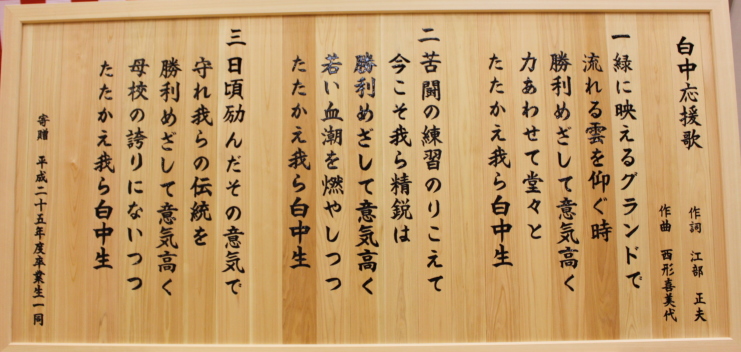 白中応援歌
作詞 江部 正夫
作曲 西形喜美代
一 緑に映えるグランドで
流れる雲を仰ぐ時
勝利めざして意気高く
力あわせて堂々と
たたかえ我ら白中生
二 苦闘の練習のりこえて
今こそ我ら精鋭は
勝利めざして意気高く
若い血潮を燃やしつつ
たたかえ我ら白中生
三 日頃励んだその意気で
守れ我らの伝統を
勝利めざして意気高く
母校の誇りにないつつ
たたかえ我ら白中生
寄贈 平成二十五年度卒業生一同